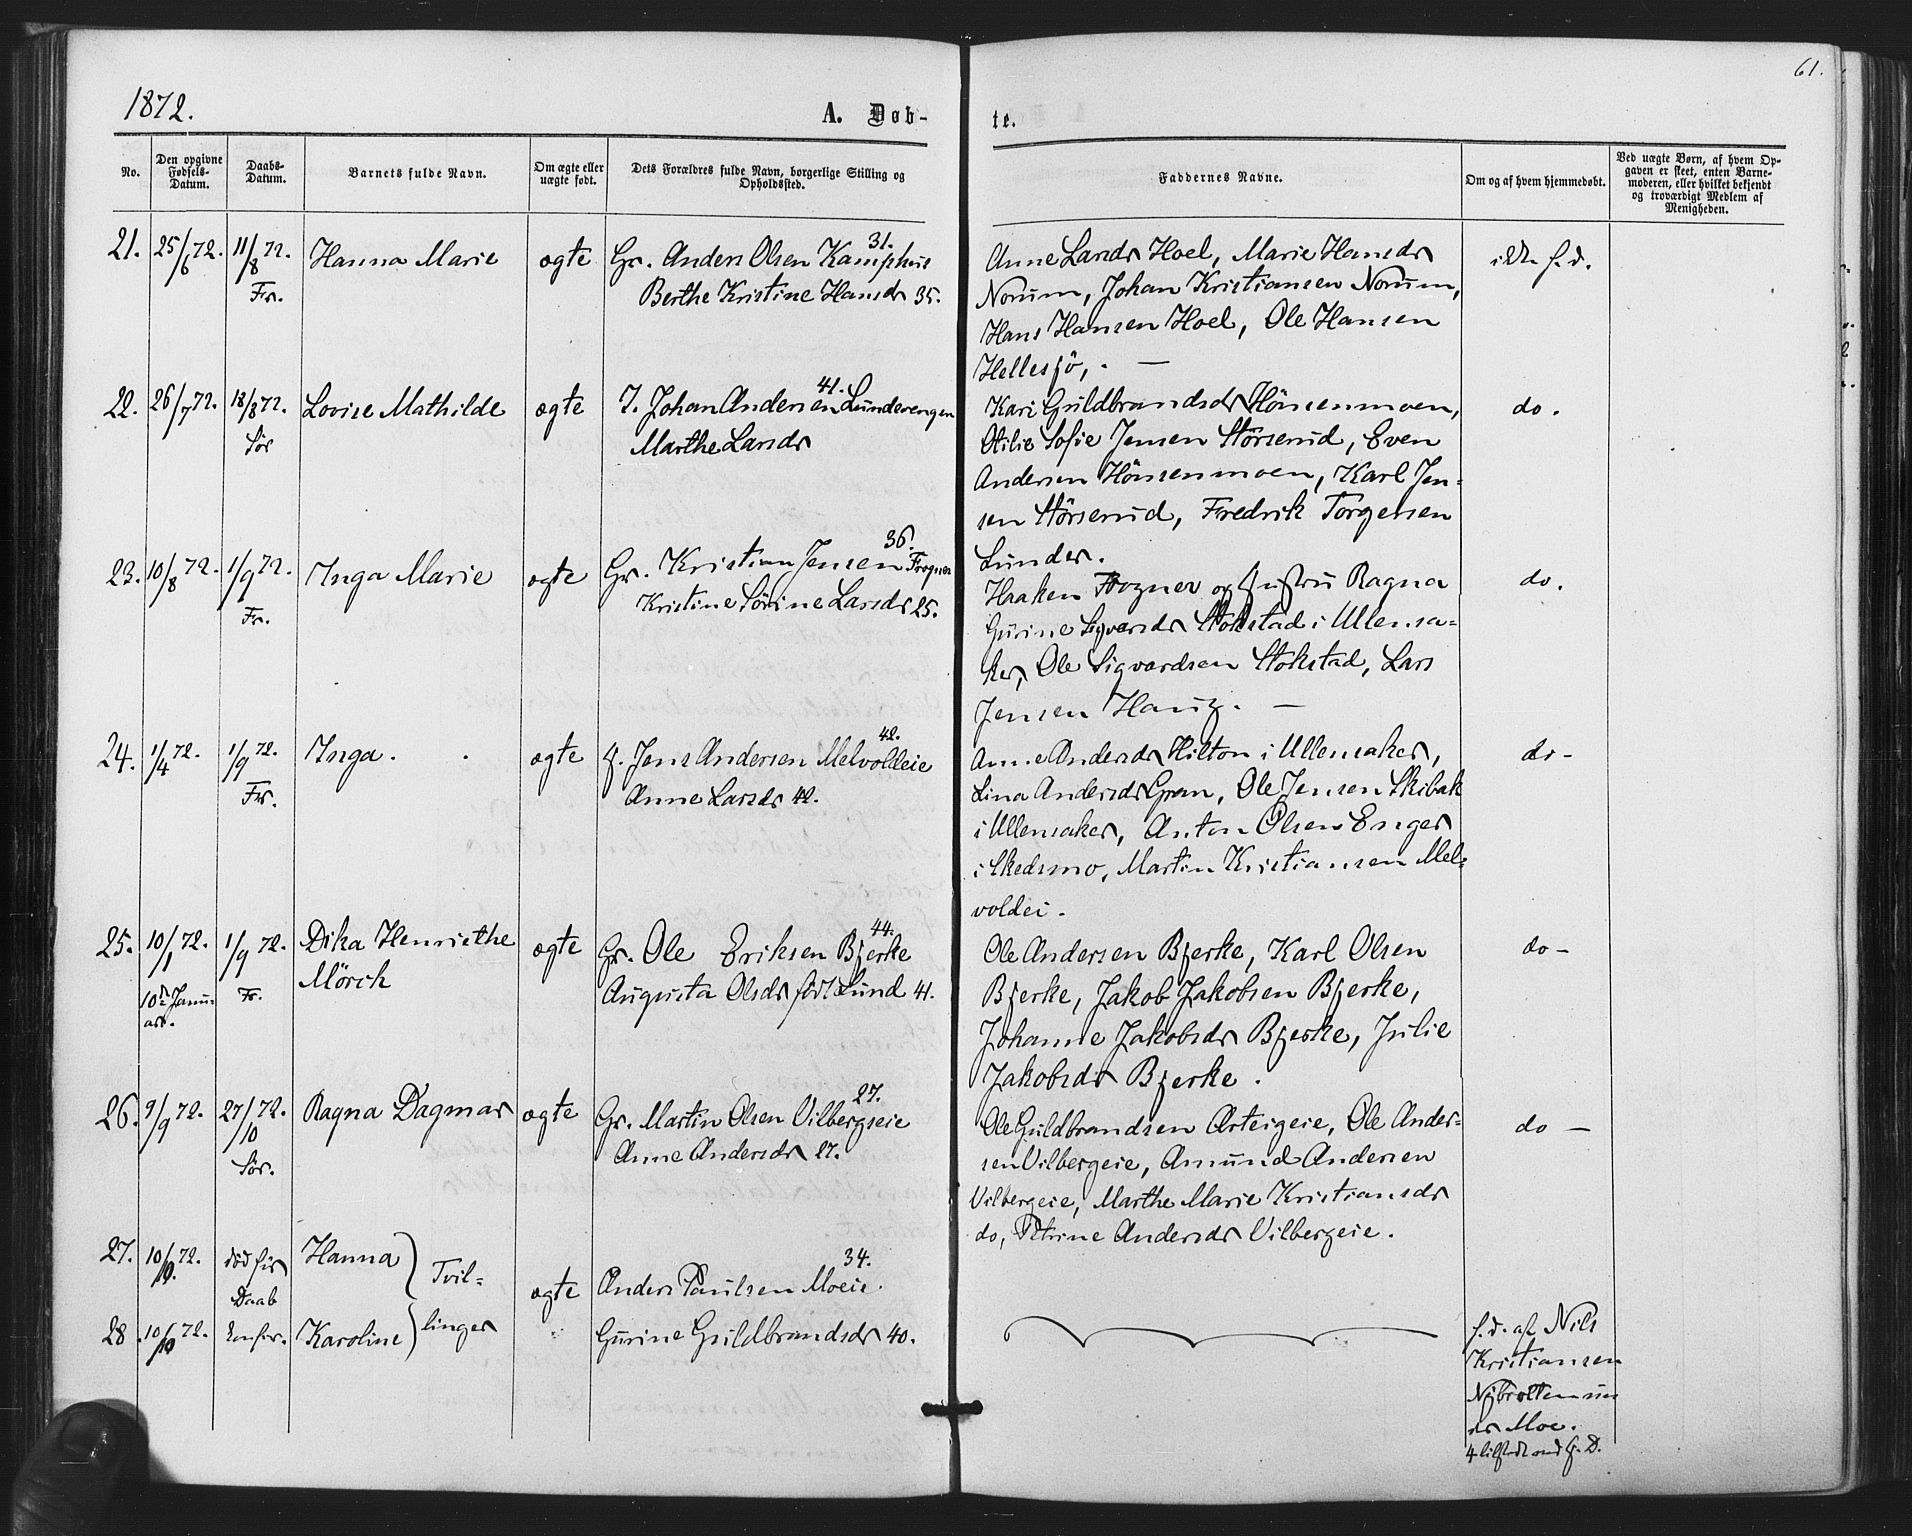 1872.
A. Døb-
te.
61.
No.
Den opgivne
Fødsels-
Datum.
Daabs-
Datum.
Barnets fulde Navn.
Om ægte eller
uægte født.
Dets Forældres fulde Navn, borgerlige Stilling og
Opholdssted.
Faddernes Navne.
Om og af hvem hjemmedøbt.
Ved uægte Børn, af hvem Op-
gaven er skeet, enten Barne-
moderen, eller hvilket bekjendt
og troværdigt Medlem af
Menigheden.
21. 25/6 72. 11/8 72. Hanna Marie ægte Gr. Anders Olsen Kamphus 31.
Fr. Berthe Kristine Hansdr 35.
Anne Larsdr Hoel, Marie Hansdr
Norum, Johan Kristiansen Norum,
Hans Hansen Hoel, Ole Hansen
Hellesjö, . —
ikke h. d.
22. 26/7 72. 18/8 72. Lovise Mathilde ægte I. Johan Andersen Lunderengen 41.
Sör Marthe Larsdr
Kari Guldbrandsdr Hönsenmoen,
Otilie Sofie Jensen Störserud, Even
Andersen Hönsenmoen, Karl Jen-
sen Störserud, Fredrik Torgersen
Lunder.
do.
23. 10/8 72. 1/9 72. Inga Marie ægte Gr. Kristian Jensen Frogner 36.
Fr. Kristine Sörine Larsdr 25.
Haaken Frogner og Hustru Ragna
Gurine Sigvardsdr Stokstad i Ullensa-
ker, Ole Sigvardsen Stokstad, Lars
Jensen Haug. —
do.
24. 1/4 72. 1/9 72. Inga. ægte Jens Andersen Melvoldeie 42.
Fr. Anne Larsdr 42.
Anne Andersdr Hilton i Ullensaker,
Lina Andersdr Gran, Ole Jensen Skibak
i Ullensaker, Anton Olsen Enger
i Skedsmo, Martin Kristiansen Mel-
voldei.
do-
25. 10/1 72. 1/9 72. Dika Henriethe ægte Gr. Ole Eriksen Bjerke 44.
10de Janu- Fr. Mörch Augusta Olsdr födt Lund 41.
ar.
Ole Andersen Bjerke, Karl Olsen
Bjerke, Jakob Jakobsen Bjerke,
Johanne Jakobsdr Bjerke, Julie
Jakobsdr Bjerke.
do-
26. 9/9 72. 27/10 72. Ragna Dagmar ægte Gr. Martin Olsen Vilbergseie 27.
Sör. Anne Andersdr 27.
Ole Guldbrandsen Arteigeie, Ole Ander-
sen Vilbergeie, Amund Andersen
Vilbergeie, Marthe Marie Kristiansdr
do, Petrine Andersdr Vilbergeie.
do —
27. 10/10 72. död för Hanna } Tvil-
Daab ægte Anders Paulsen Moeie. 34.
28. 10/10 72. Karoline } linger Gurine Guldbrandsdr 40.
h. d. af Nils
Kristiansen
Nybrotten un
der Moe.
4 tilstede ved H. D.